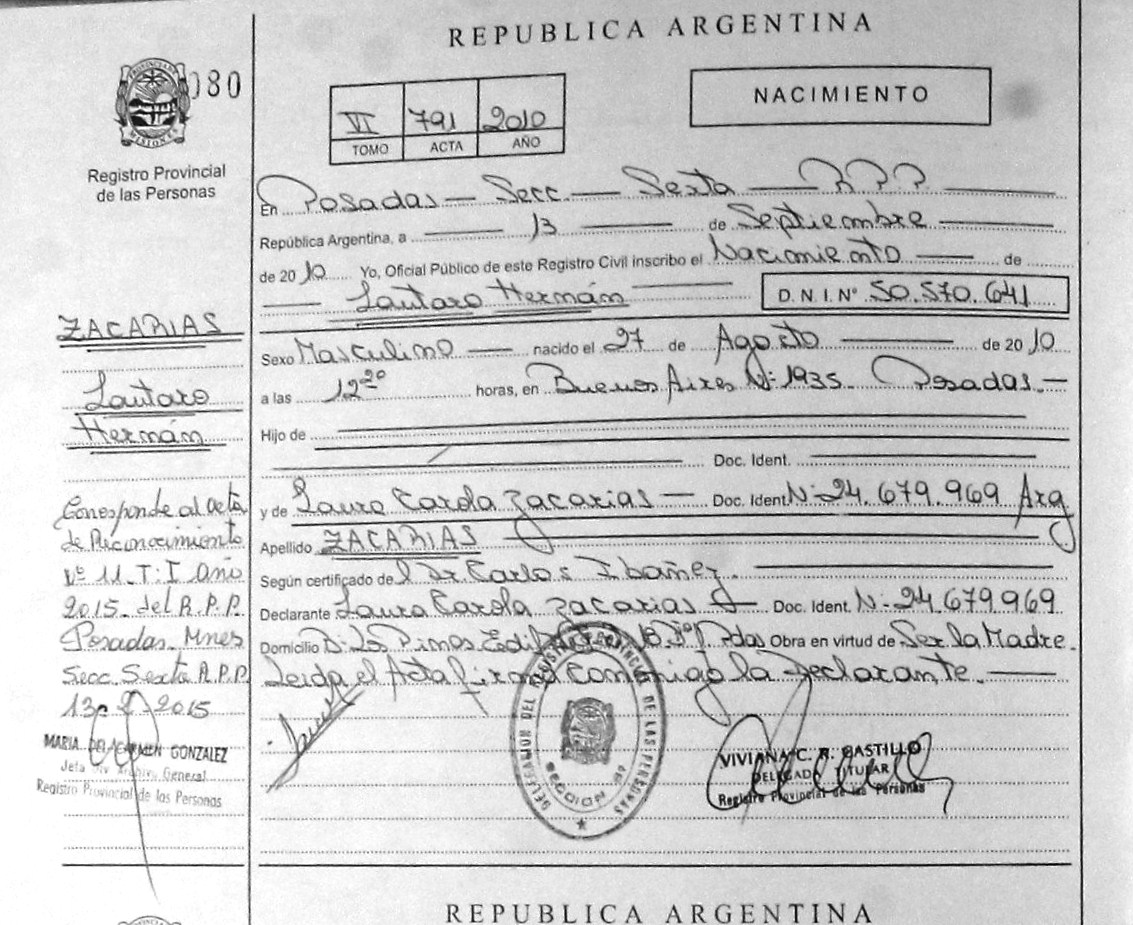 REPUBLICA ARGENTINA
080
PROVINCIA DE MISIONES
Registro Provincial
de las Personas
VI 791 2010
TOMO ACTA AÑO
NACIMIENTO
En Posadas - Secc. - Sexta - R.P.P.
República Argentina, a 13 de Septiembre
de 2010 Yo, Oficial Público de este Registro Civil inscribo el Nacimiento de
Lautaro Hernán D.N.I.Nº 50.570.641
Sexo Masculino nacido el 27 de Agosto de 2010
a las 12 20 horas, en Buenos Aires Nº 1935. Posadas.
Hijo de
Doc. Ident.
y de Laura Carola Zacarias - Doc. Ident. Nº 24.679.969 Arg
Apellido ZACARIAS
Según certificado de l Dr Carlos Ibañez.
Declarante Laura Carola Zacarias Doc. Ident. Nº 24.679.969
Domicilio Pinos Obra en virtud de Ser la Madre.
Leida el Acta firma Conmigo la Declarante.
ZACARIAS
Lautaro
Hernán
Corresponde al Acta
de Reconocimiento
Nº 11 T: I Año
2015 del R.P.P.
Posadas Mnes
Secc. Sexta R.P.P.
2015
MARIA DEL CARMEN GONZALEZ
Jefa Div Archivo General
Registro Provincial de las Personas
DELEGACION DEL REGISTRO PROVINCIAL DE LAS PERSONAS
SECCION 6ª
VIVIANA C. R. CASTILLO
DELEGADA TITULAR
Registro Provincial de las Personas
REPUBLICA ARGENTINA